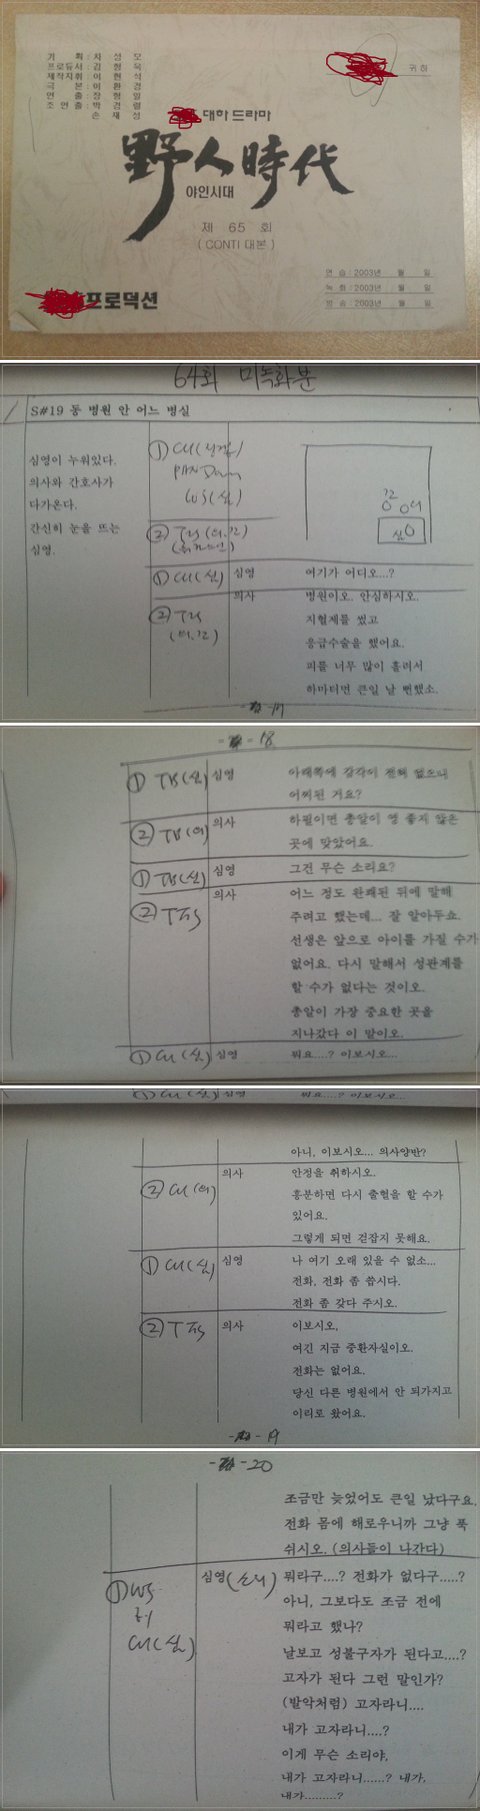 기 획 : 지 성 모
프로듀서 : 김 형 목
제작지휘 : 이 현 석
극 본 : 이 환 경
연 출 : 장 형 일
조 연 출 : 박 경 렬
손 재 성
귀 하
대하 드라마
野人時代
야인시대
제 65 회
( CONTI 대본 )
연 습 : 2003년 월 일
녹 화 : 2003년 월 일
방 송 : 2003년 월 일
프로덕션
64회 미녹화분
S#19 동 병원 안 어느 병실
심영이 누워있다.
의사와 간호사가
다가온다.
간신히 눈을 뜨는
심영.
① CU
PAN Down
② T2S
① CU (심) 심영 여기가 어디오...?
② T2S 의사 병원이오. 안심하시오.
지혈제를 썼고
응급수술을 했어요.
피를 너무 많이 흘려서
하마터면 큰일 날 뻔했소.
- 18
① TB (심) 심영 아래쪽에 감각이 전혀 없으니
어찌된 거요?
② TB (의) 의사 하필이면 총알이 영 좋지 않은
곳에 맞았어요.
① TB (심) 심영 그건 무슨 소리요?
② T 의사 어느 정도 완쾌된 뒤에 말해
주려고 했는데... 잘 알아두쇼.
선생은 앞으로 아이를 가질 수가
없어요. 다시 말해서 성관계를
할 수가 없다는 것이오.
총알이 가장 중요한 곳을
지나갔다 이 말이오.
① CU (심) 심영 뭐요....? 이보시오...
① CU (심) 심영 뭐요....? 이보시오...
아니, 이보시오... 의사양반?
② CU (의) 의사 안정을 취하시오.
흥분하면 다시 출혈을 할 수가
있어요.
그렇게 되면 걷잡지 못해요.
① CU (심) 심영 나 여기 오래 있을 수 없소...
전화, 전화 좀 씁시다.
전화 좀 갖다 주시오.
② T 의사 이보시오,
여긴 지금 중환자실이오.
전화는 없어요.
당신 다른 병원에서 안 되가지고
이리로 왔어요.
- 19
- 20
조금만 늦었어도 큰일 났다구요.
전화 몸에 해로우니까 그냥 푹
쉬시오. (의사들이 나간다)
① WS CU (심) 심영 (소리) 뭐라구....? 전화가 없다구.....?
아니, 그보다도 조금 전에
뭐라고 했나?
날보고 성불구자가 된다고....?
고자가 된다 그런 말인가?
(발악처럼) 고자라니....
내가 고자라니....?
이게 무슨 소리야,
내가 고자라니......? 내가,
내가.........?